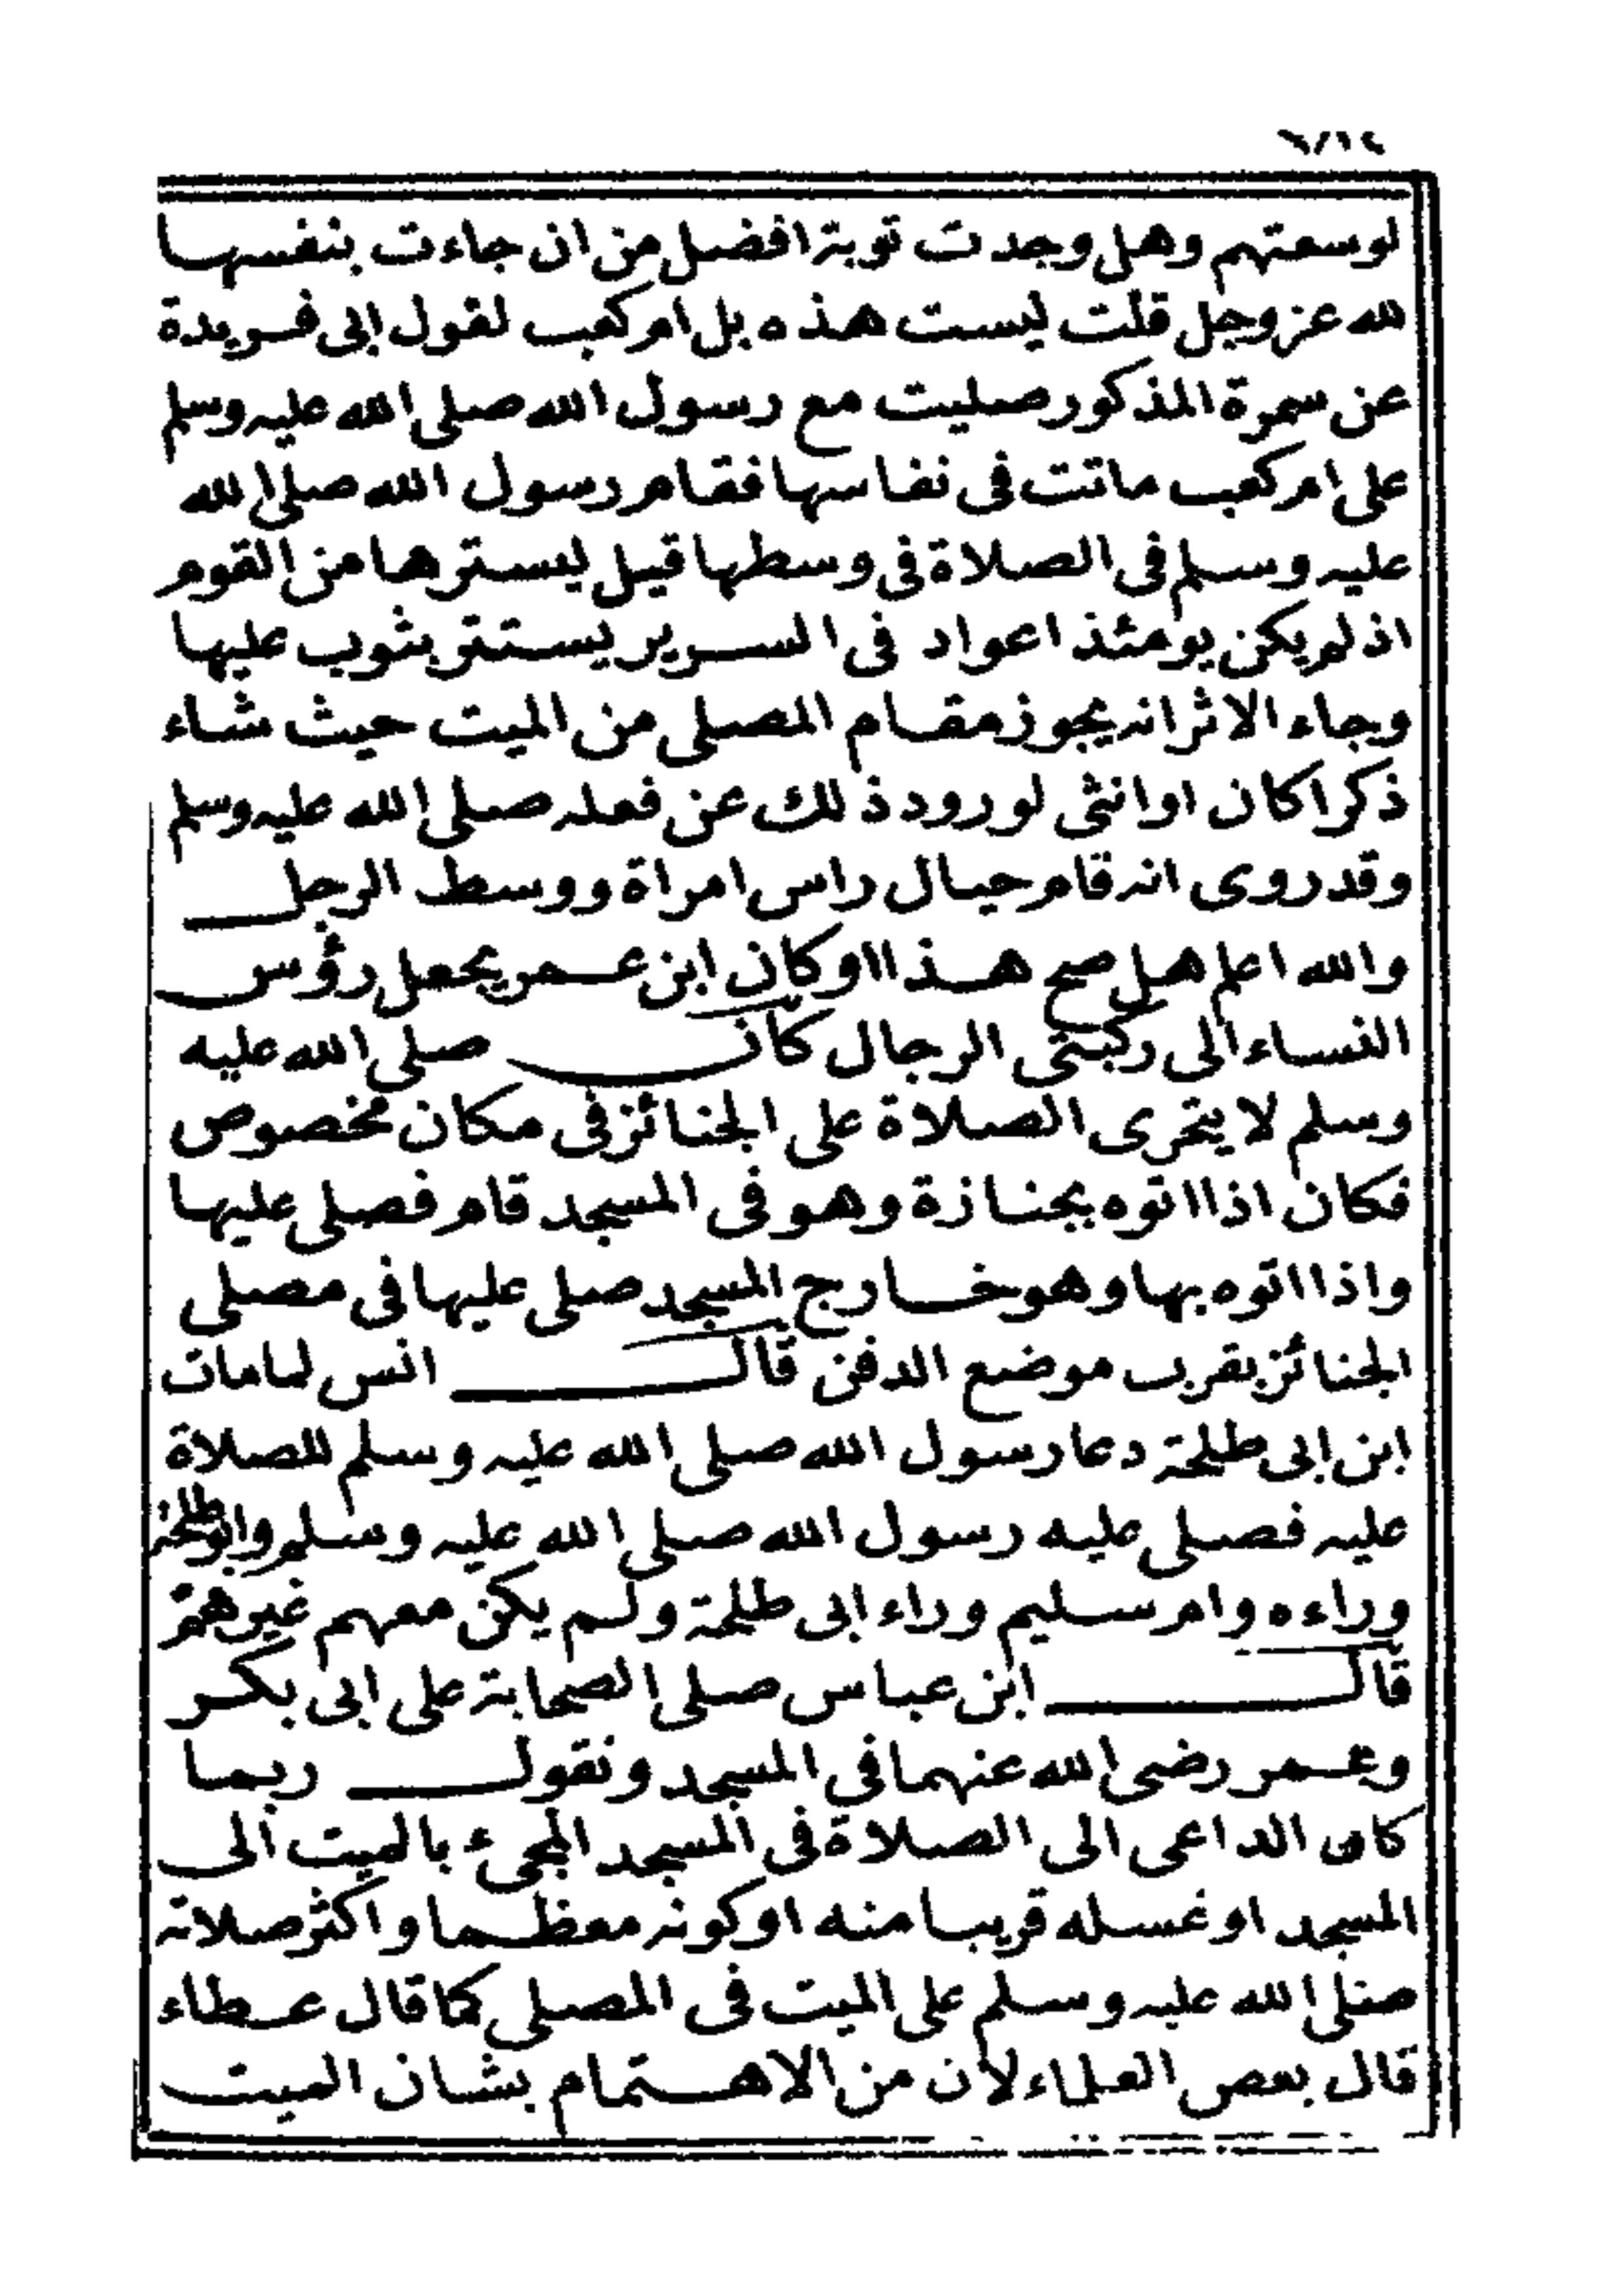 لوسعتهم وهل وجدت توبة افضل من ان جاءت بنفسها
لله عز وجل قلت ليست هذه بل ام كعب لقول ابى فريدة
عن سمرة المذكور صليت مع رسول الله صلى الله عليه وسلم
على ام كعب ماتت فى نفاسها فقام رسول الله صلى الله
عليه وسلم فى الصلاة فى وسطها قيل ليسترها من القوم
اذ لم يكن يومئذ اعواد فى السرير يستتر بثوب عليها
وجاء الاثر انه يجوز مقام المصلى من الميت حيث شاء
ذكرا كان او انثى لورود ذلك عن فعله صلى الله عليه وسلم
وقد روى انه قام حيال راس امراة ووسط الرجل
والله اعلم هل صح هذا او كان ابن عمر يجعل رؤس
النساء الى ركبتى الرجال كان صلى الله عليه
وسلم لا يتحرى الصلاة على الجنائز فى مكان مخصوص
فكان اذا اتوه بجنازة وهو فى المسجد قام فصلى عليها
واذا اتوه بها وهو خارج المسجد صلى عليها فى مصلى
الجنائز بقرب موضع الدفن قال انس لما مات
ابن ابى طلحة دعا رسول الله صلى الله عليه وسلم للصلاة
عليه فصلى عليه رسول الله صلى الله عليه وسلم وابوطلحة
وراءه وام سليم وراء ابى طلحة ولم يكن معهم غيرهم
قال ابن عباس صلى الصحابة على ابى بكر
وعمر رضى الله عنهما فى المسجد ونقول ربما
كان الداعى الى الصلاة فى المسجد المجىء بالميت الى
المسجد او غسله قريبا منه او كونه معظما واكثر صلاته
صلى الله عليه وسلم على الميت فى المصلى كما قال عطاء
قال بعض العلماء لان من الاهتمام بشان الميت